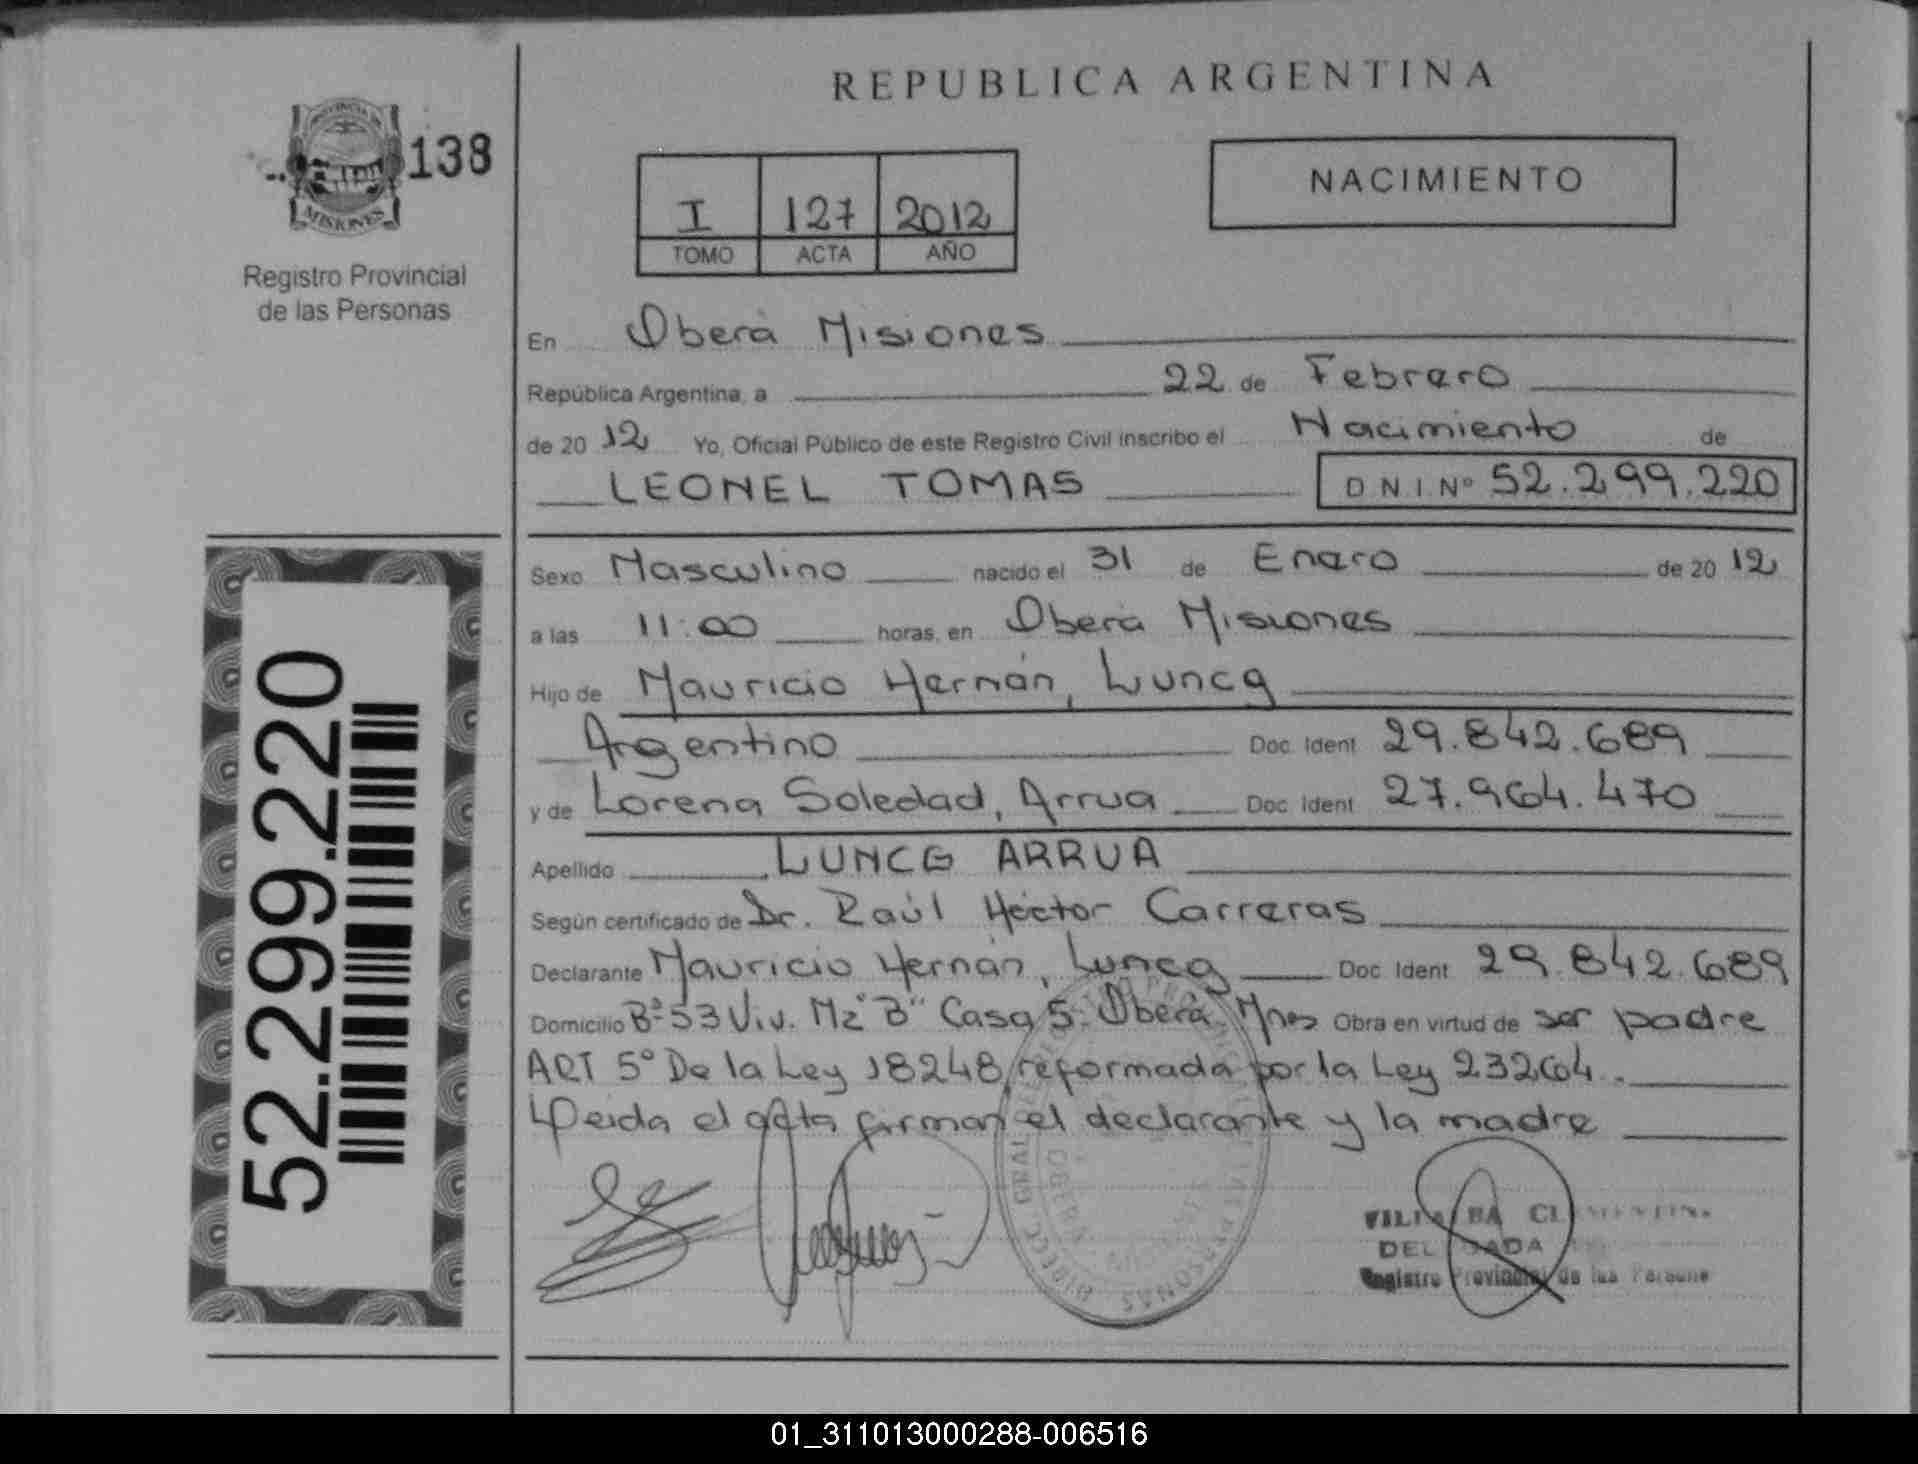 REPUBLICA ARGENTINA
PROVINCIA DE
MISIONES
138
Registro Provincial
de las Personas
I 127 2012
TOMO ACTA AÑO
NACIMIENTO
En Oberá Misiones
República Argentina, a 22 de Febrero
de 20 12 Yo, Oficial Público de este Registro Civil inscribo el Nacimiento de
LEONEL TOMAS D N I Nº 52.299.220
Sexo Masculino nacido el 31 de Enero de 20 12
a las 11:00 horas, en Oberá Misiones
Hijo de Mauricio Hernán, Luncg
Argentino Doc. Ident 29.842.689
y de Lorena Soledad, Arrua Doc. Ident 27.964.470
Apellido LUNCG ARRUA
Según certificado de Dr. Raúl Héctor Carreras
Declarante Mauricio Hernán, Luncg Doc. Ident 29.842.689
Domicilio Bº 53 Viv. Mz "B" Casa 5. Oberá, Mnes Obra en virtud de ser padre
ART 5º De la Ley 18248 reformada por la Ley 23264.
Leida el acta firman el declarante y la madre
VILLALBA CLEMENTINA
DELEGADA
Registro Provincial de las Personas
52.299.220
01_311013000288-006516